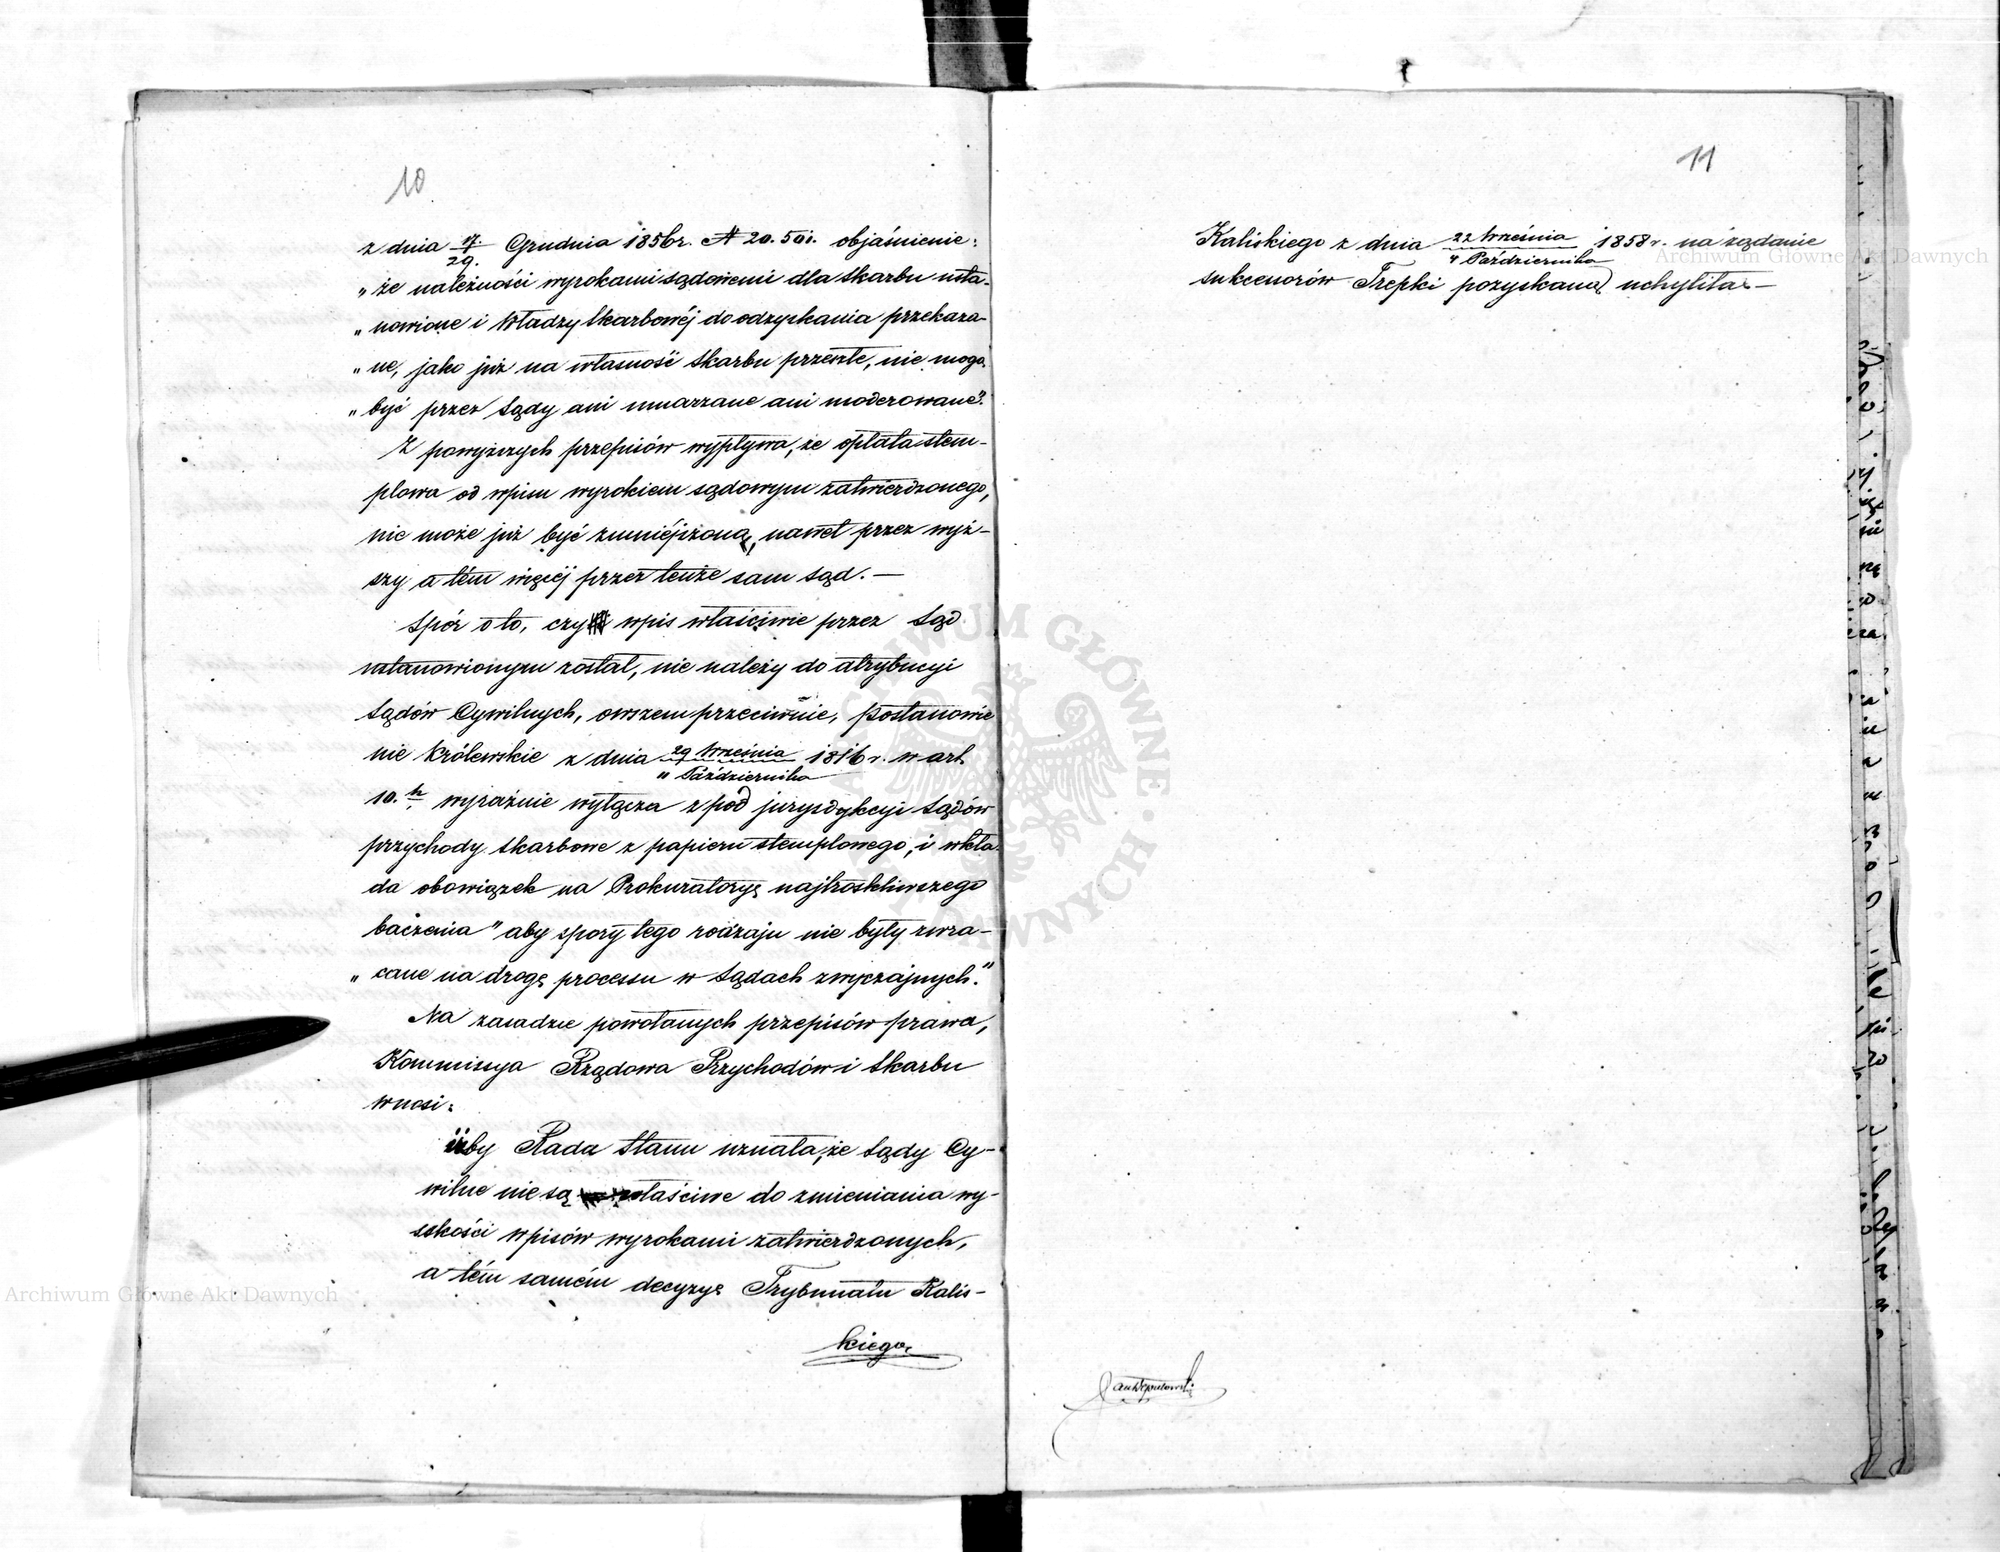 10
z dnia 17./29. Grudnia 1856 r. N 20.501. objaśnienie:
„że należności wyrokami sądowemi dla Skarbu usta-
„nowione i Władzy Skarbowéj do odzyskania przekaza-
„ne, jako już na własność Skarbu przeszłe, nie mogą
„być przez Sądy ani umarzane ani moderowane".
Z powyższych przepisów wypływa, że opłata stem-
plowa od wpisu wyrokiem sądowym zatwierdzonego,
nie może już być zmniéjszoną, nawet przez wyż-
szy a tém więcéj przez tenże sam Sąd. —
Spór o to, czy wpis właściwie przez Sąd
ustanowionym został, nie należy do atrybucyi
Sądów Cywilnych, owszem przeciwnie, Postanowie
nie Królewskie z dnia 29 Września/11 Października 1816 r. w art.
10.m wyraźnie wyłącza z pod jurysdykcyi Sądów
przychody Skarbowe z papieru stemplowego, i wkła-
da obowiązek na Prokuratoryę najtroskliwszego
baczenia "aby spory tego rodzaju nie były zwra-
„cane na drogę processu w Sądach zwyczajnych."
Na zasadzie powołanych przepisów prawa,
Kommissya Rządowa Przychodów i Skarbu
wnosi:
iżby Rada Stanu uznała, że Sądy Cy-
wilne nie są właściwe do zmieniania wy-
sokości wpisów wyrokami zatwierdzonych,
a tém samém decyzyę Trybunału Kalis-
kiego
11
Kaliskiego z dnia 22 Września/4 Października 1858 r. na żądanie
sukcessorów Trepki pozyskaną, uchyliła —
Archiwum Główne Akt Dawnych
Archiwum Główne Akt Dawnych
ARCHIWUM GŁÓWNE AKT DAWNYCH